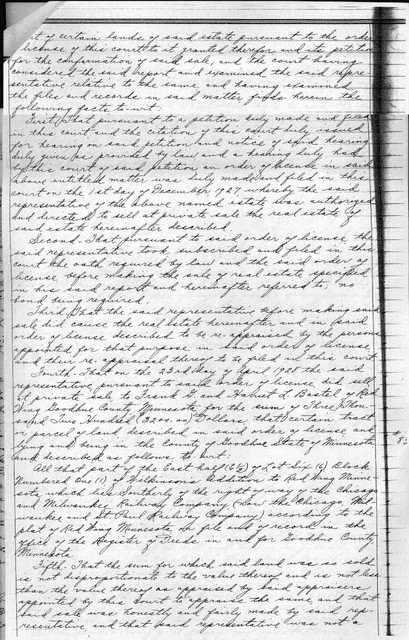 of certain lands of said estate pursuant to the order
license of this court to it granted therefor and its petition
for the confirmation of said sale, and the court having
considered the said report and examined the said repre-
sentative relative to the same, and having examined
the files and records in said matter finds herein the
following facts to-wit:
First, That pursuant to a petition duly made and filed
in this court and the citation of this court duly issued
for hearing on said petition and notice of said hearing
duly given as provided by law and a hearing duly had
by this court of said petition an order of license in said
above entitled matter was duly made and filed in this
court on the 1st day of December 1927 whereby the said
representative of the above named estate was authorized
and directed to sell at private sale the real estate of
said estate hereinafter described.
Second. That pursuant to said order of license the
said representative took, subscribed and filed in this
court the oath required by law and the said order of
license before making the sale of real estate specified
in his said report and hereinafter referred to, no
bond being required.
Third, That the said representative before making said
sale did cause the real estate hereinafter and in said
order of license described to be re-appraised by the persons
appointed for that purpose in said order of license
and their re-appraisal thereof to be filed in this court
Fourth. That on the 23rd day of April 1928 the said
representative, pursuant to said order of license did sell
at private sale to Frank G. and Harriet L. Bastel of Red
Wing Goodhue County Minnesota for the sum of Three Thou-
sand Two Hundred (3200.00) Dollars, that certain tract
or parcel of land described in said order of license and
lying and being in the County of Goodhue State of Minnesota
and described as follows, to-wit:
All that part of the East half (E½) of Lot Six (6) Block
Numbered One (1) of Wilkinson's Addition to Red Wing Minne-
sota which lies Southerly of the right of way of the Chicago
and Milwaukee Railway Company (now the Chicago Mil-
waukee and St Paul Railway Company) according to the
plat of Red Wing Minnesota on file and of record in the
office of the Register of Deeds in and for Goodhue County
Minnesota
Fifth. That the sum for which said land was so sold
is not disproportionate to the value thereof and is not less
than the value thereof as appraised by said appraisers
appointed by this court to appraise the same, and that
said sale was honestly and fairly made by said rep-
resentative, and that said representative was not a